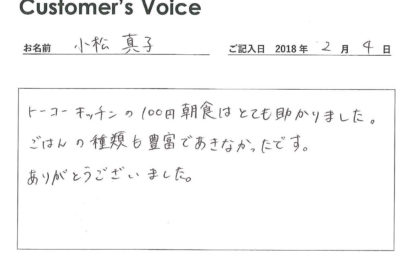 Customer's Voice
お名前 小松 真子 ご記入日 2018 年 2 月 4 日
トーコーキッチンの100円朝食はとても助かりました。
ごはんの種類も豊富であきなかったです。
ありがとうございました。